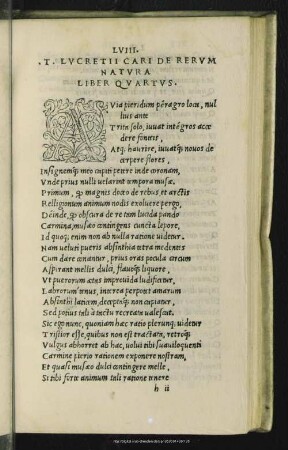 LVIII.
.T. LVCRETII CARI DE RERVM
NATVRA
LIBER QVARTVS.
Via pieridum peragro loca, nul
lius ante
Trita solo, iuuat intégros acce
dere fonteis,
Atq; haurire, iuuatq; nouos de
cerpere flores,
Insignemq; meo capiti petere inde coronam,
Vnde prius nulli uelarint tempora musæ.
Primum, quod magnis doceo de rebus, et arctis
Relligionum animum nodis exoluere pergo,
Deinde, quod obscura de re tam lucida pando
Carmina, musæo contingens cuncta lepore,
Id quoq; enim non ab nulla ratione uidetur,
Nam ueluti pueris absinthia tetra medentes
Cum dare conantur, prius oras pocula circum
Aspirant mellis dulci, flauoq; liquore,
Vt puerorum ætas improuida ludificetur,
Labrorum tenus, interea perpotet amarum
Absinthi laticem, deceptaq; non capiatur,
Sed potius tali à tactu recreata ualescat.
Sic ego nunc, quoniam hæc ratio plerunq; uidetur
Tristior esse, quibus non est tractata, retroq;
Vulgus abhorret ab hac, uolui tibi suauiloquenti
Carmine pierio rationem exponere nostram,
Et quasi musæo dulci contingere melle,
Si tibi forte animum tali ratione tenere
h ii